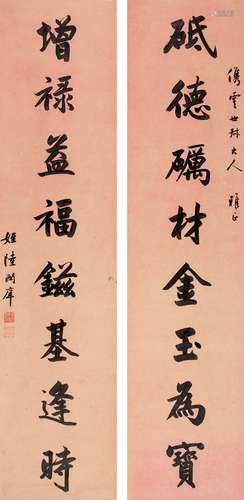 儁雲世棣大人 雅正
砥德礪材金玉為寶
增祿益福鎡基逢時
姪陸潤庠